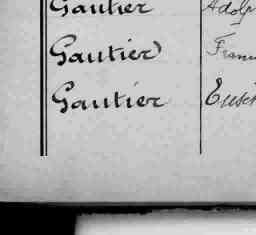 Gautier Adolp
Gautier Fran
Gautier Eus